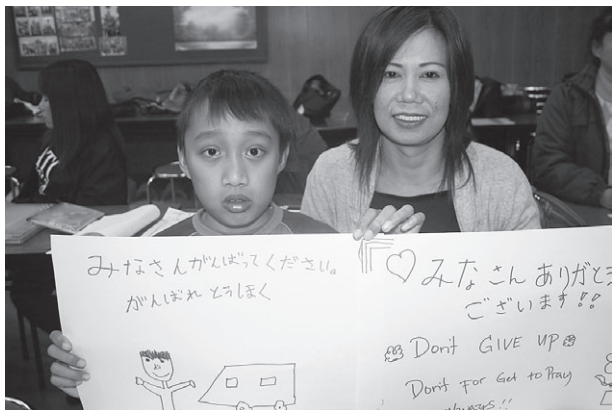 みなさんがんばってください。
がんばれ とうほく
みなさん ありがとう
ございます!!
Don't GIVE UP
Don't For Get to Pray
always!!